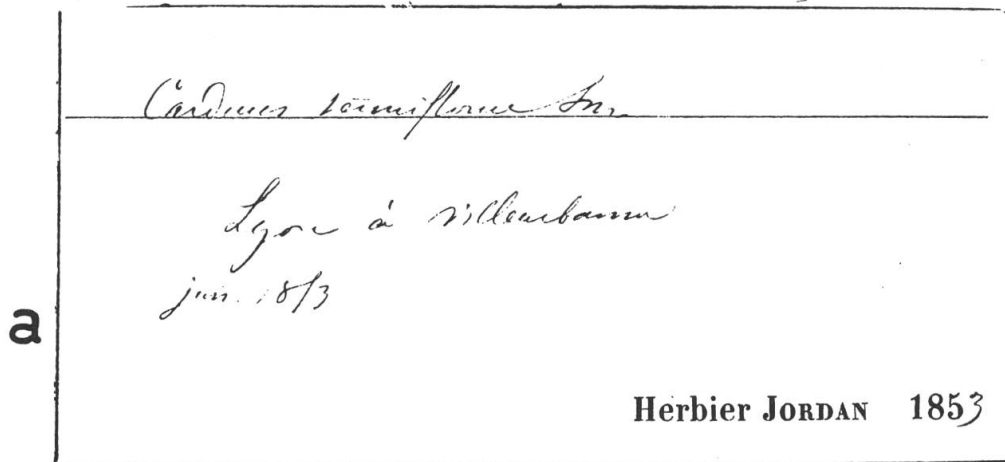 Carduus tenuiflorus Sm.
Lyon à villeurbanne
juin 1853
a
Herbier JORDAN 1853